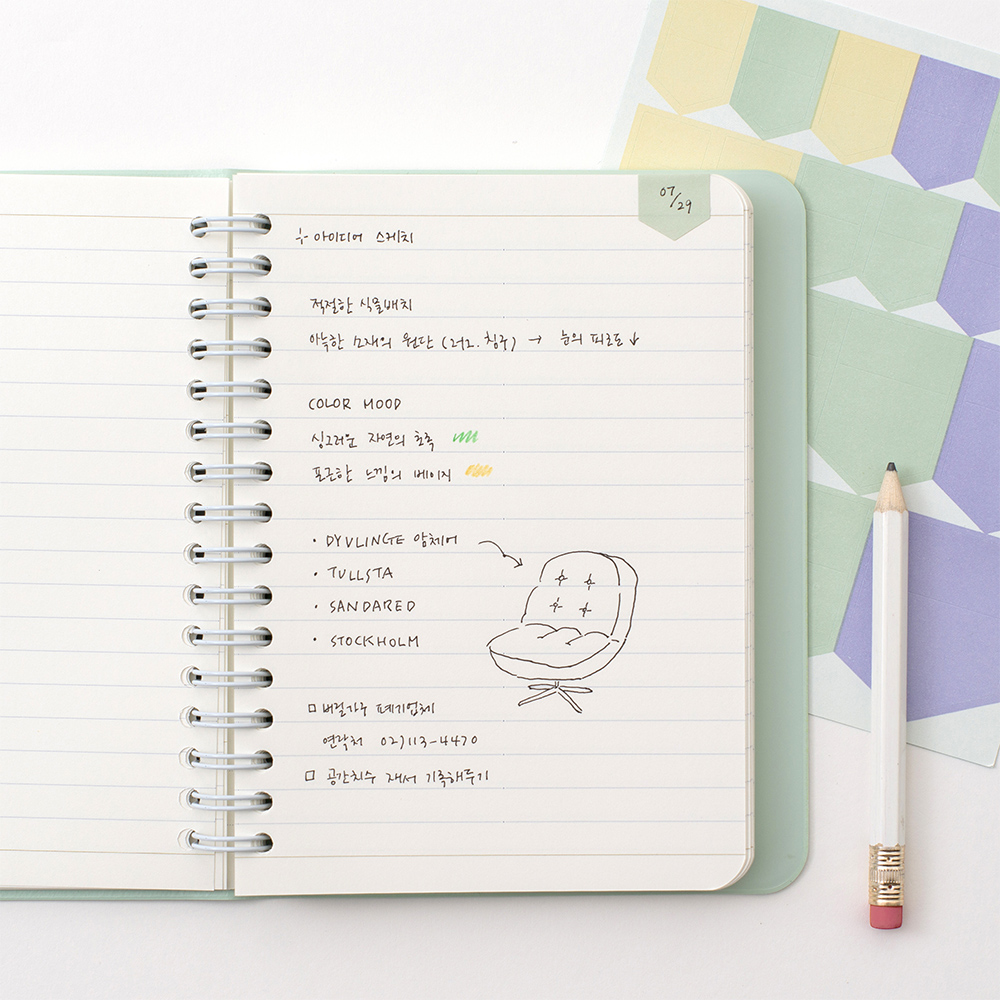 07/29
÷ 아이디어 스케치
적절한 식물배치
아늑한 소재의 원단 (러그. 침구) → 눈의 피로도 ↓
COLOR MOOD
싱그러운 자연의 초록
포근한 느낌의 베이지
· DYVLINGE 암체어
· TULLSTA
· SANDARED
· STOCKHOLM
□ 버릴가구 폐기업체
연락처 02)113-4470
□ 공간치수 재서 기록해두기